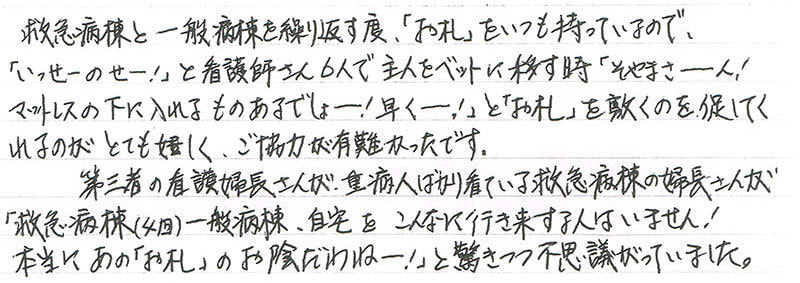 救急病棟と一般病棟を繰り返す度、「お札」をいつも持っているので、
「いっせーのせー!」と看護師さん6人で主人をベットに移す時「そやまさーーん!
マットレスの下に入れるものあるでしょー!早くー!」と「お札」を敷くのを促してく
れるのがとても嬉しく、ご協力が有難かったです。
第三者の看護婦長さんが、重病人ばかり看ている救急病棟の婦長さんが
「救急病棟(4回)一般病棟、自宅をこんなに行き来する人はいません!
本当にあの「お札」のお陰だわねー!」と驚きつつ不思議がっていました。